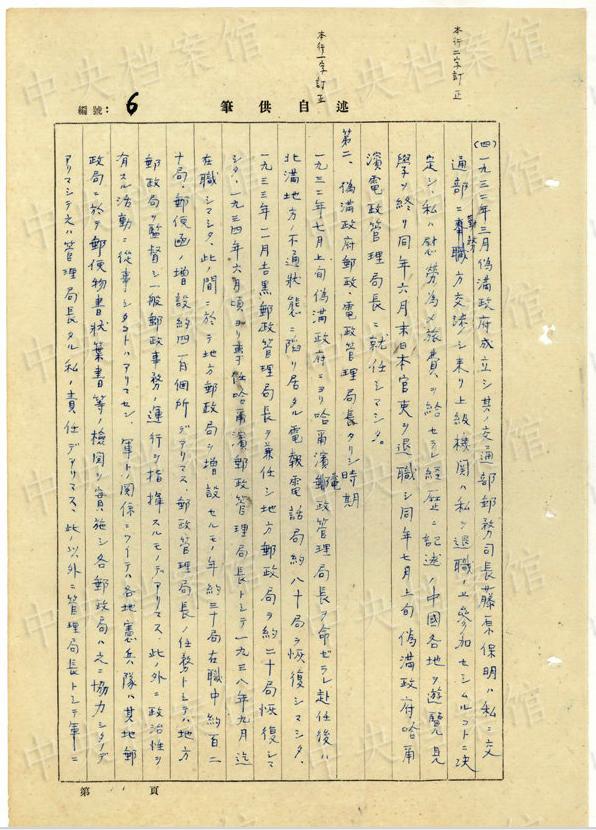 本行二字訂正
本行一字訂正
編號：6
述自供筆
(四)一九三二年三月偽満政府成立シ其ノ交通部郵務司長藤原保明ハ私ニ交
通部ニ勤務方交渉シ来リ上級機関ハ私ヲ退職ノ上参加セシムルコトニ決
定シ、私ハ慰労為メ旅費ヲ給セラレ経歴ニ記述ノ中國各地ヲ遊覧見
學ヲ終リ同年六月末日本官吏ヲ退職シ同年七月上旬偽満政府哈爾
濱電政管理局長ニ就任シマシタ。
第二、偽満政府郵政電政管理局長タリシ時期
一九三二年七月上旬偽満政府ニヨリ哈爾濱電政管理局長ヲ命ゼラレ赴任後ハ
北満地方ノ不通狀態ニ陥リ居タル電報電話局約八十局ヲ恢復シマシタ、
一九三三年二月吉黒郵政管理局長ヲ兼任シ地方郵政局ヲ約二十局恢復シマ
シタ、一九三四年六月頃ヨリ専任哈爾濱郵政管理局長トシテ一九三八年九月迄
在職シマシタ、此ノ間ニ於テ地方郵政局ヲ増設セルモノ年約三十局在職中約百二
十局、郵便函ノ増設約四百個所デアリマス、郵政管理局長ノ任務トシテハ地方
郵政局ヲ監督シ一般郵政事務ノ運行ヲ指揮スルモノデアリマス、此ノ外ニ政治性ヲ
有スル活動ニ從事シタコトハアリマセン、軍トノ関係ニツイテハ各地憲兵隊ハ其地郵
政局ニ於テ郵便物書狀葉書等ノ検閲ヲ實施シ各郵政局ハ之ニ協力シタノデ
アリマシテ之ハ管理局長タル私ノ責任デアリマス、此ノ以外ニ管理局長トシテ軍ニ
第　頁
中央档案馆